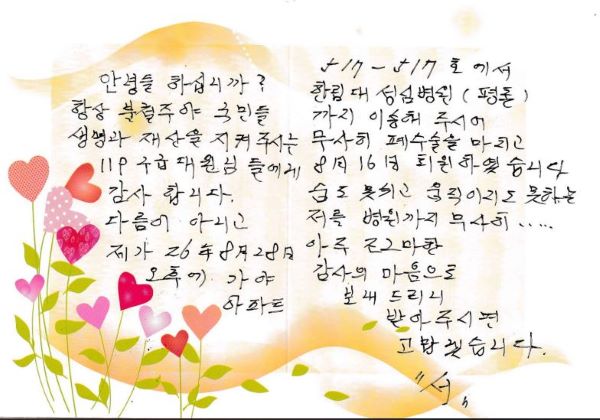 안녕들 하십니까?
항상 불철주야 국민들
생명과 재산을 지켜주시는
119 구급대원님 들에게
감사 합니다.
다름이 아니고
제가 26年 8月 28日
오후에 가야
아파트
517 - 517 호에서
한림대 성심병원 (평촌)
까지 이송해 주시어
무사히 폐수술을 마치고
8月 16日 퇴원하였습니다
숨도 못쉬고 움직이지도 못하는
저를 병원까지 무사히 .....
아주 조그마한
감사의 마음으로
보내 드리니
받아주시면
고맙겠습니다.
"서"